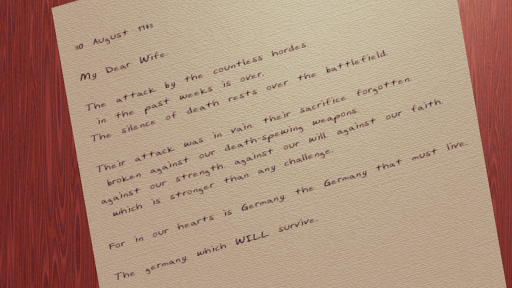 August
My Dear Wife
The attack by the countless hordes
in the past weeks is over.
The silence of death rests over the battlefield.
Their attack was in vain their sacrifice forgotten
broken against our death-spewing weapons
against our strength against our will against our faith.
which is stronger than any challenge.
For in our hearts is Germany the Germany that must live.
The germany which WILL survive.